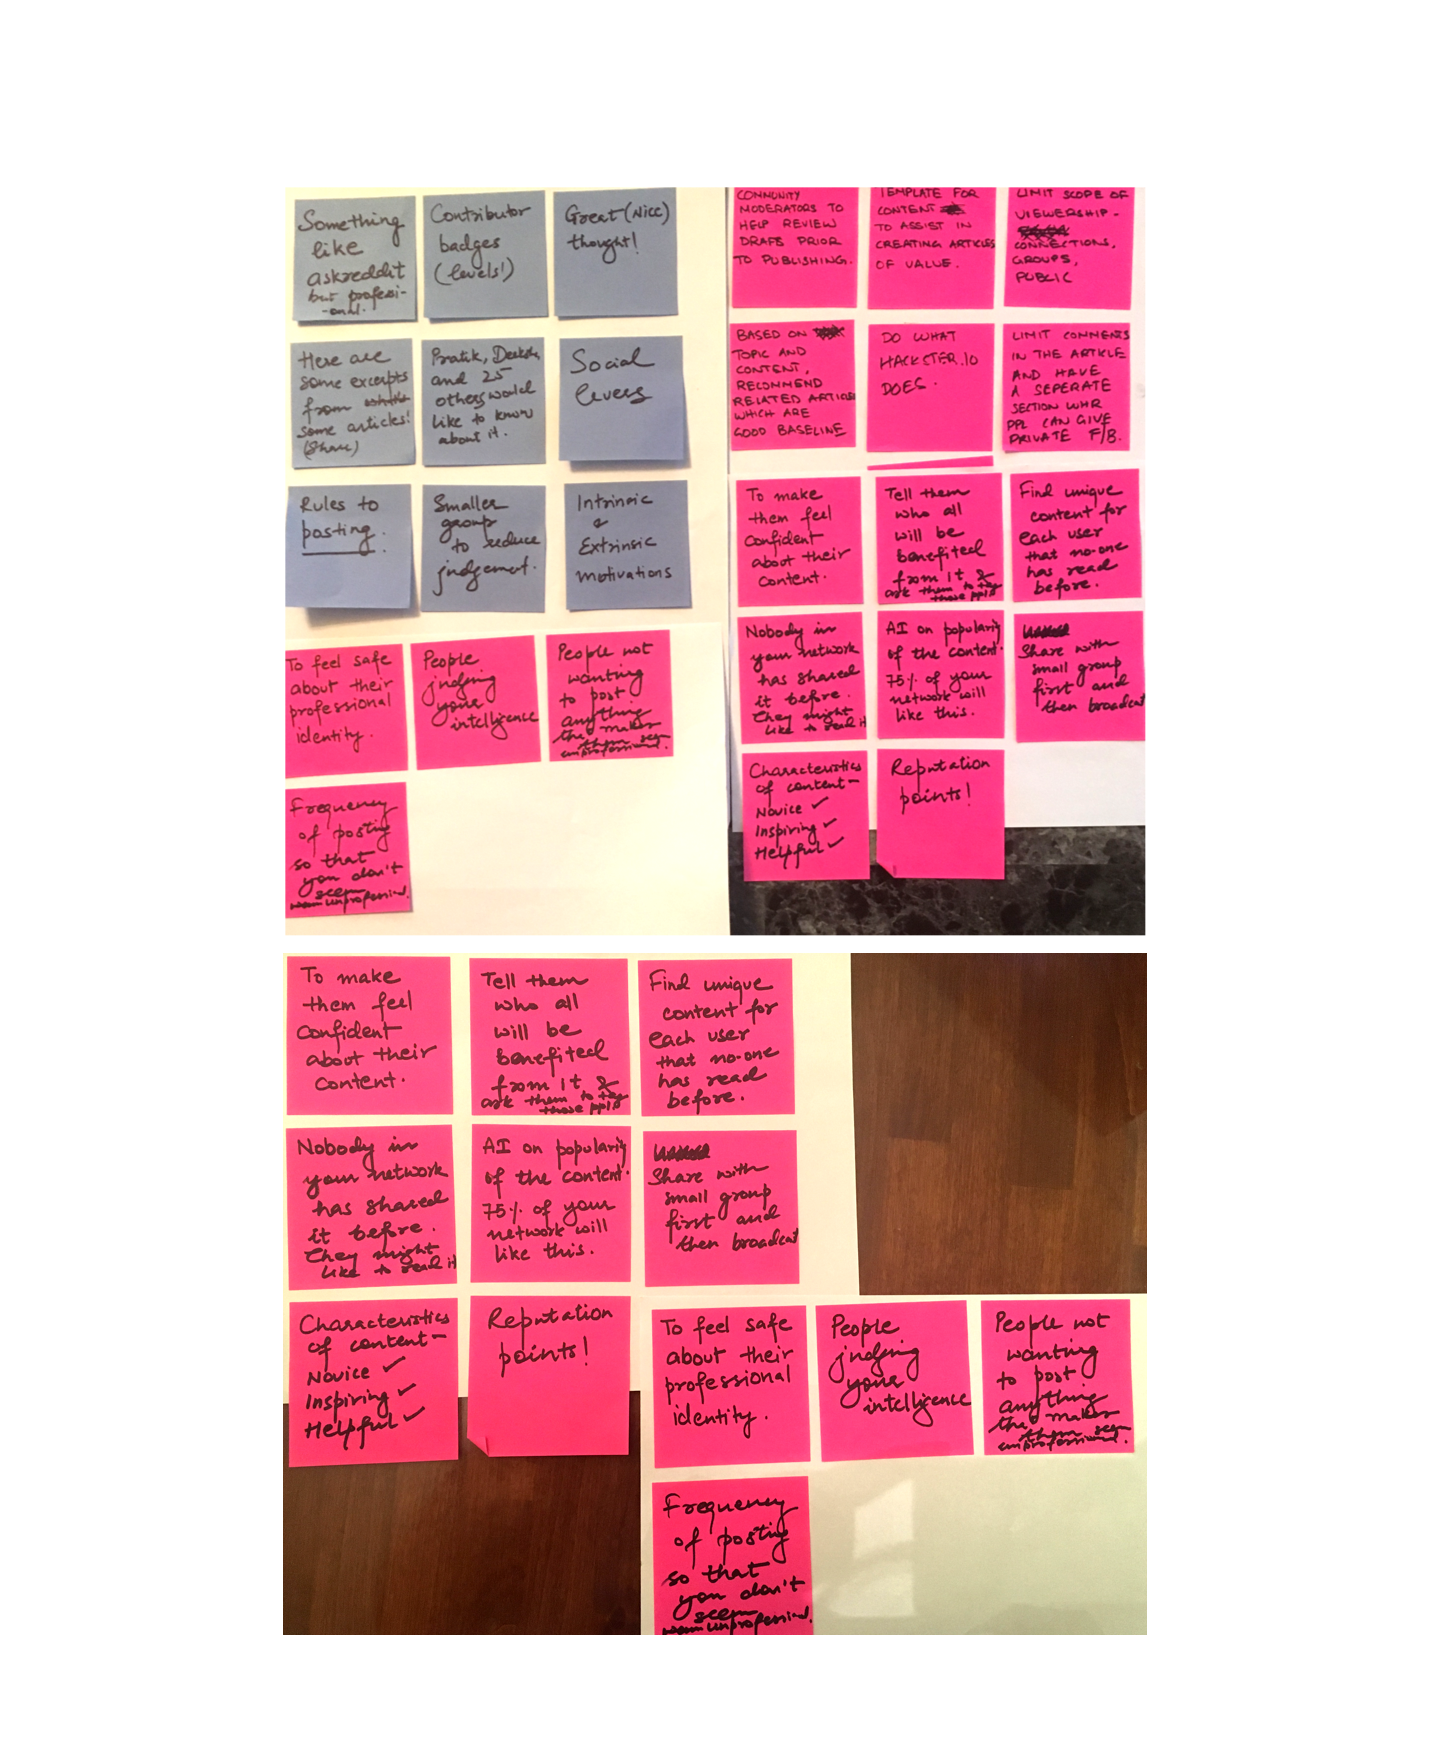 Something
like
askreddit
but professi-
-onal.
Contributor
badges
(levels!)
Great (Nice)
thought!
Here are
some excerpts
from
some articles!
(Share)
Pratik,
and 25
others would
like to know
about it.
Social
levers
Rules to
posting.
Smaller
group
to reduce
judgement.
Intrinsic
&
Extrinsic
motivations
To feel safe
about their
professional
identity.
People
judging
your
intelligence
People not
wanting
to post
anything
that makes
them seem
unprofessional.
Frequency
of posting
so that
you don't
seem
unprofessional.
COMMUNITY
MODERATORS TO
HELP REVIEW
DRAFS PRIOR
TO PUBLISHING.
TEMPLATE FOR
CONTENT
TO ASSIST IN
CREATING ARTICLES
OF VALUE.
LIMIT SCOPE OF
VIEWERSHIP -
CONNECTIONS,
GROUPS,
PUBLIC
BASED ON
TOPIC AND
CONTENT,
RECOMMEND
RELATED ARTICLES
WHICH ARE
GOOD BASELINE
DO WHAT
HACKSTER.IO
DOES.
LIMIT COMMENTS
IN THE ARTICLE
AND HAVE
A SEPERATE
SECTION WHR
PPL CAN GIVE
PRIVATE F/B.
To make
them feel
confident
about their
content.
Tell them
who all
will be
benefited
from it &
ask them to tag
those ppl
Find unique
content for
each user
that no-one
has read
before.
Nobody in
your network
has shared
it before.
They might
like to read it
AI on popularity
of the content.
75% of your
network will
like this.
Share with
small group
first and
then broadcast
Characteristics
of content-
Novice ✓
Inspiring ✓
Helpful ✓
Reputation
points!
To make
them feel
confident
about their
content.
Tell them
who all
will be
benefited
from it &
ask them to tag
those ppl
Find unique
content for
each user
that no-one
has read
before.
Nobody in
your network
has shared
it before.
They might
like to read it
AI on popularity
of the content.
75% of your
network will
like this.
Share with
small group
first and
then broadcast
Characteristics
of content-
Novice ✓
Inspiring ✓
Helpful ✓
Reputation
points!
To feel safe
about their
professional
identity.
People
judging
your
intelligence
People not
wanting
to post
anything
that makes
them seem
unprofessional.
Frequency
of posting
so that
you don't
seem
unprofessional.